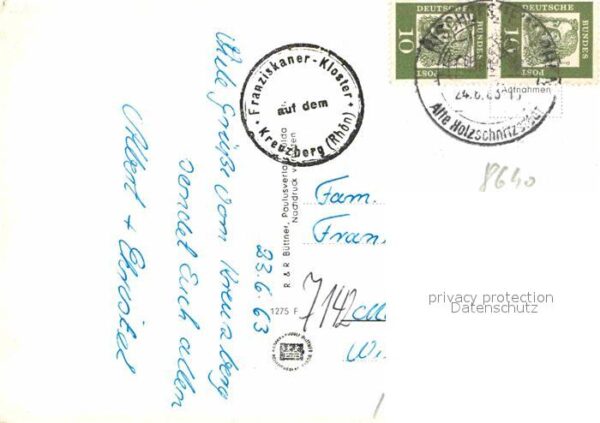 Viele Grüße vom Kreuzberg
sendet Euch allen
Albert + Christel
23.6.63
Franziskaner-Kloster
auf dem
Kreuzberg (Rhön)
R. & R. Büttner, Paulusverlag,
Nachdruck
1275 F
DEUTSCHE
BUNDES
POST
10
DEUTSCHE
BUNDES
POST
Aufnahmen
24.6.63
Alte Holzschnitz
8640
Fam.
Fran
7142
privacy protection
Datenschutz